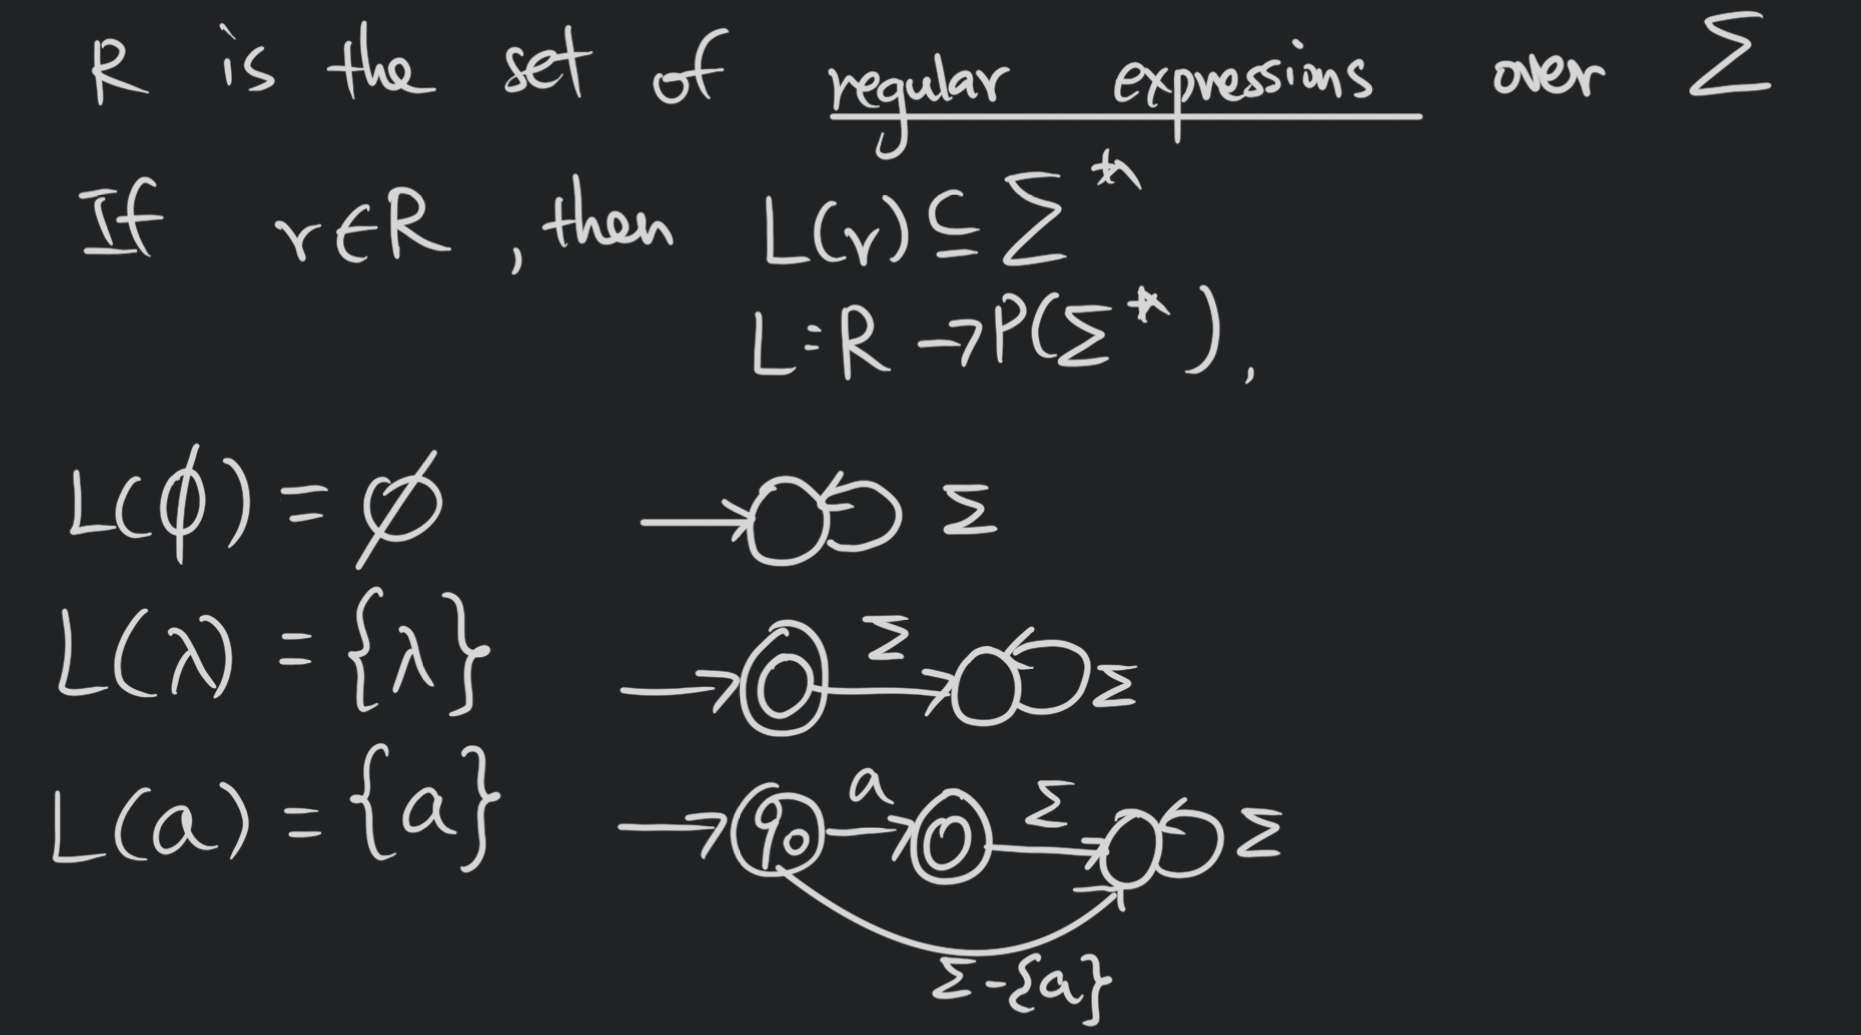 R is the set of regular expressions over Σ
If r∈R, then L(r) ⊆ Σ*
L: R → P(Σ*),
L(ϕ) = ∅ Σ
L(λ) = {λ} Σ Σ
L(a) = {a} q₀ a Σ Σ
Σ-{a}